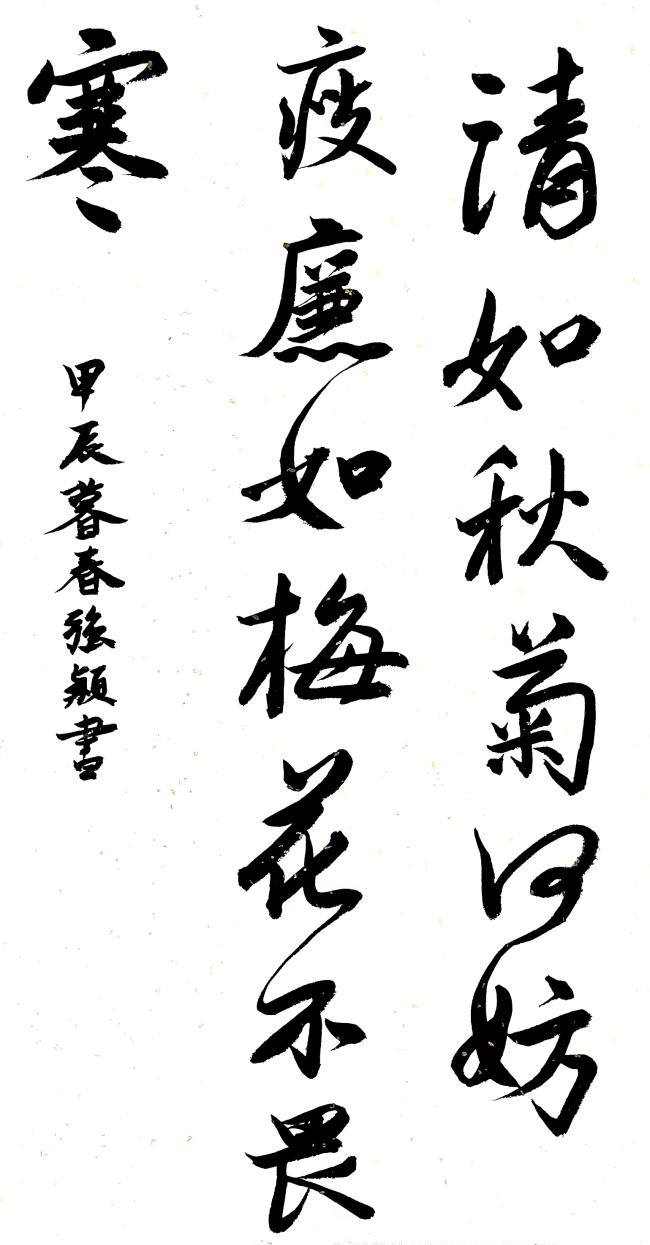 清如秋菊何妨
瘦廉如梅花不畏
寒
甲辰暮春强颖書